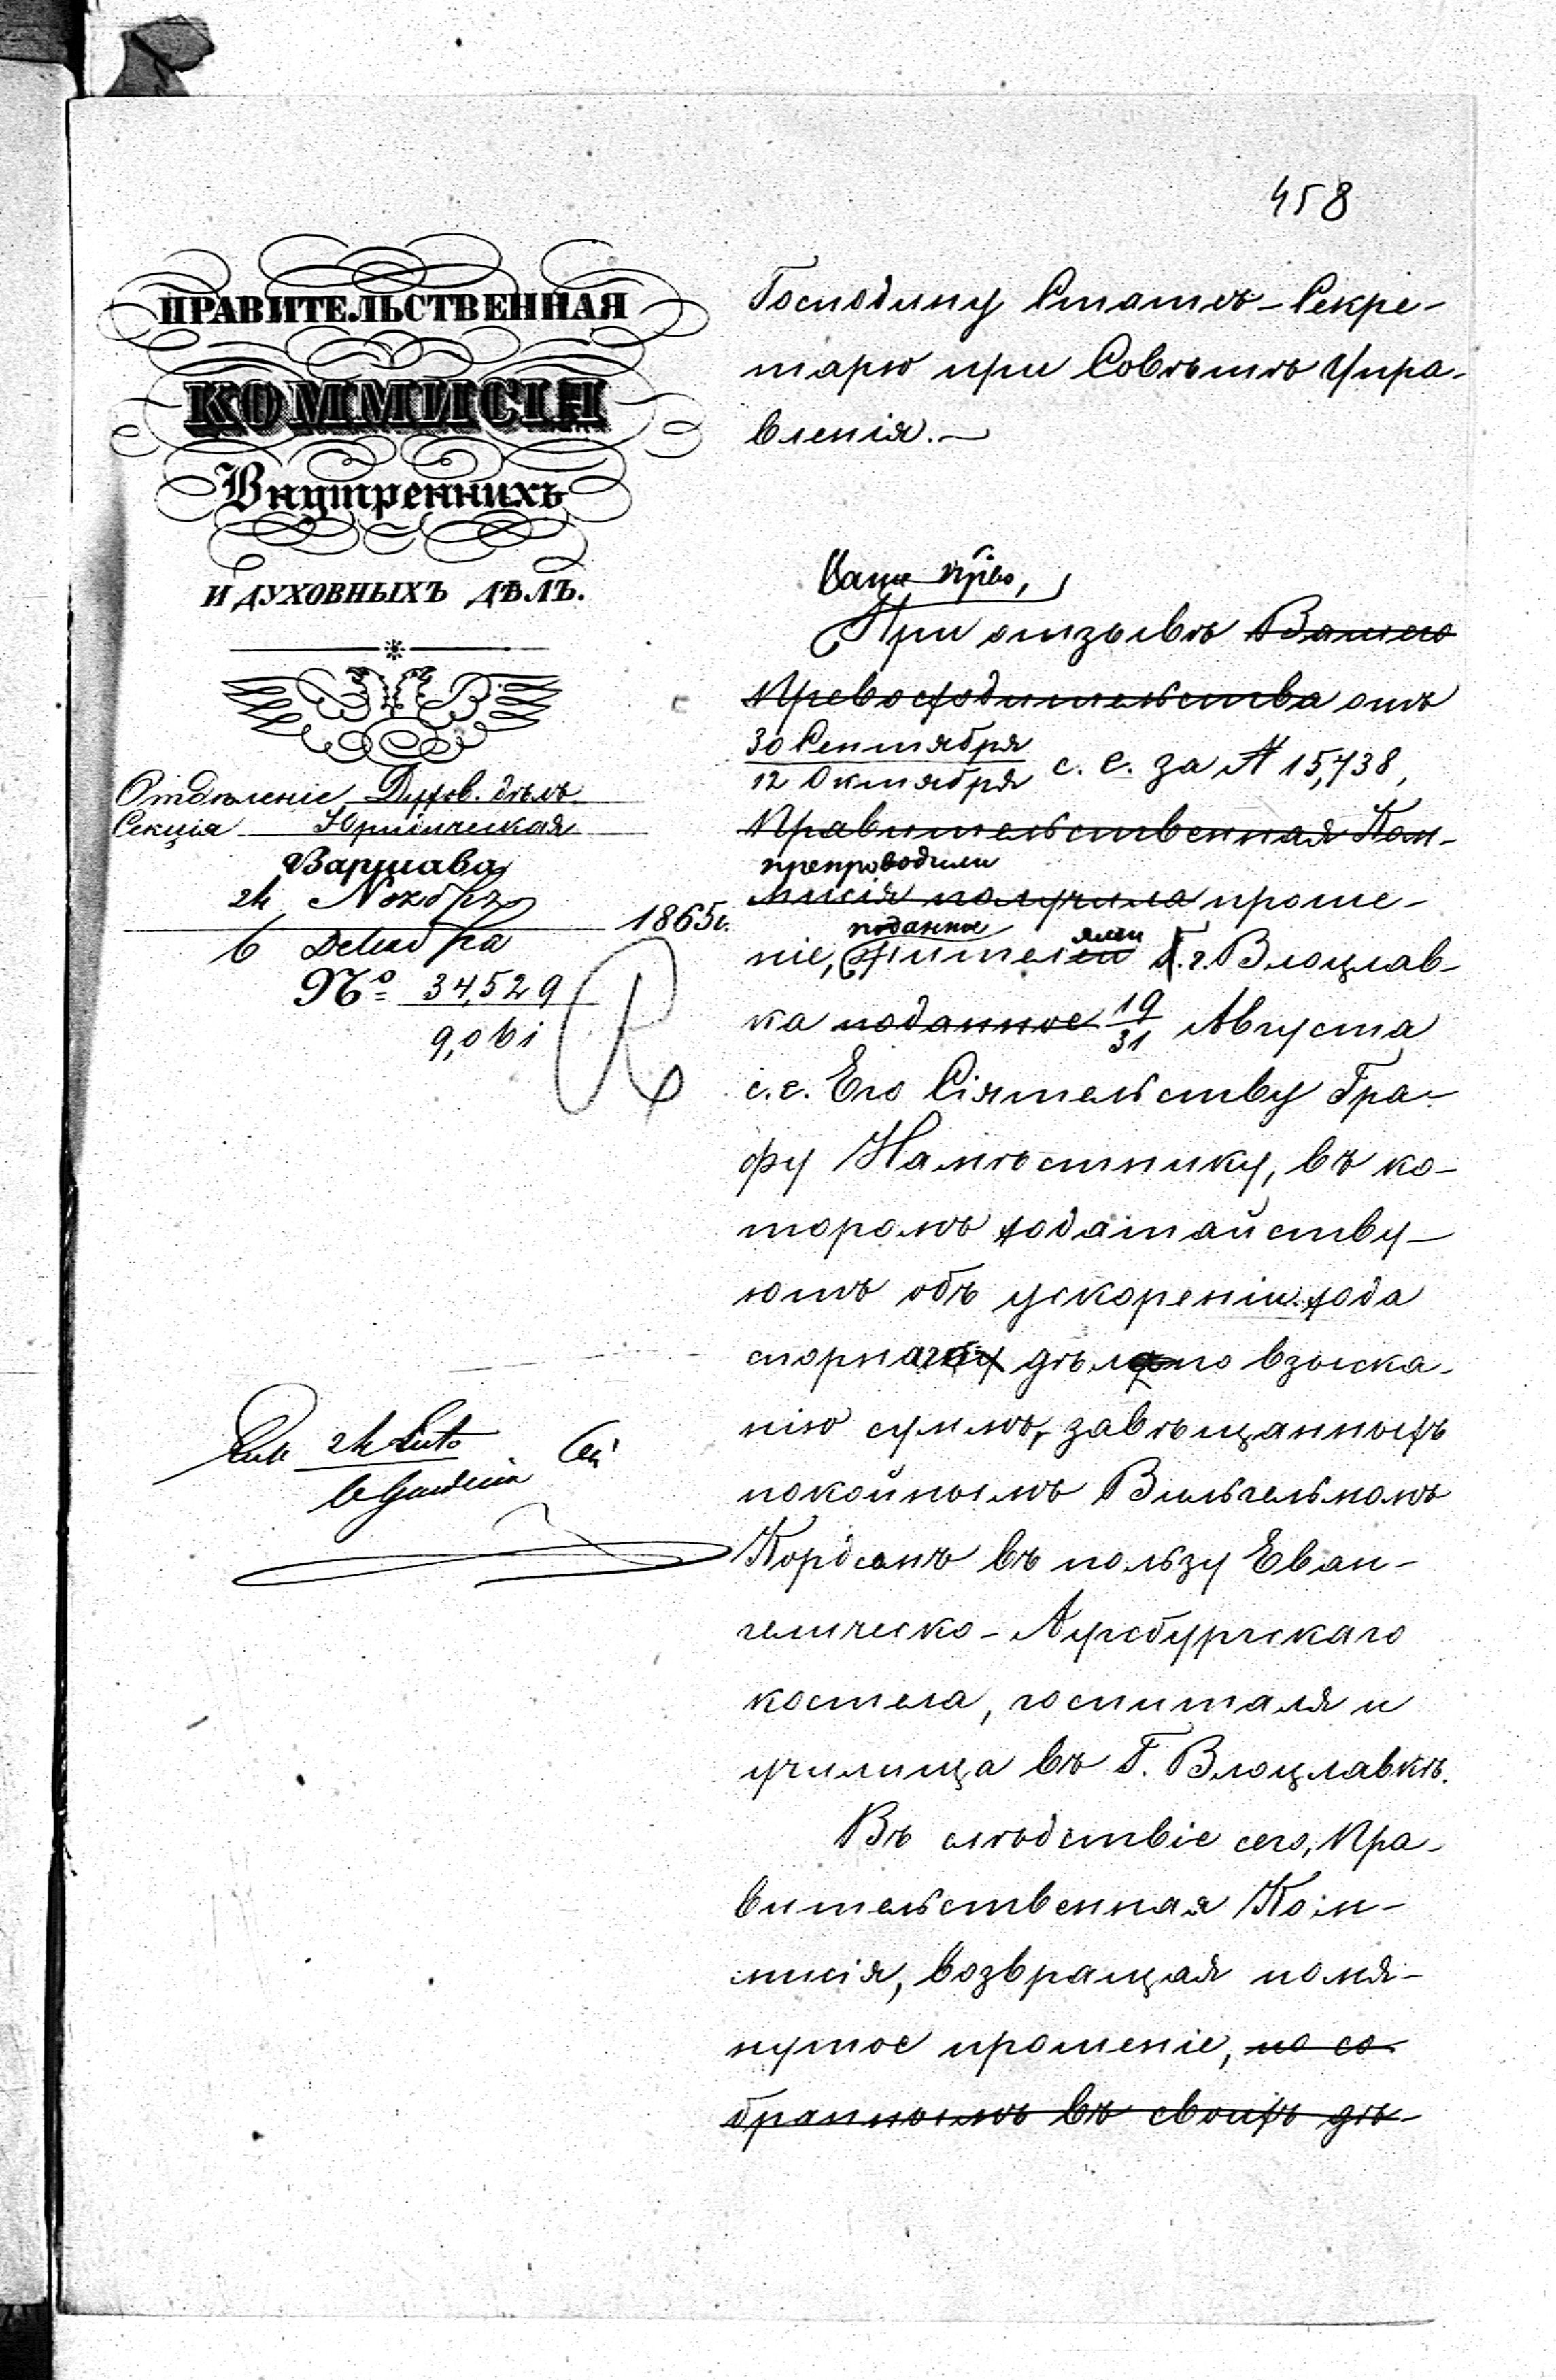 458
ПРАВИТЕЛЬСТВЕННАЯ
КОММИСІЯ
Внутреннихъ
И ДУХОВНЫХЪ ДѢЛЪ.
Отдѣленіе Духов. дѣлъ
Секція Юридическая
Варшава
24 Ноября
6 Декабря
1865 г.
№ 34,529
9,061
Господину Статсъ-Секре-
тарю при Совѣтѣ Упра-
вленія.—
Ваше пр-во,
При отзывѣ Вашего
Превосходительства отъ
30 Сентября
12 Октября с. г. за № 15,738,
Правительственная Ком-
препроводили
мисія получила проше-
поданное ями
ніе, жителей Г. г. Влоцлав-
ка поданное 19/31 Августа
с. г. Его Сіятельству Гра-
фу Намѣстнику, въ ко-
торомъ ходатайству-
ютъ объ ускореніи хода
спорнаго дѣла по взыска-
нію суммъ, завѣщанныхъ
покойнымъ Вильгельмомъ
въ пользу Еван-
гелическо-Аугсбургскаго
костела, госпиталя и
училища въ Г. Влоцлавкѣ.
Въ слѣдствіе сего, Пра-
вительственная Ком-
мисія, возвращая помя-
нутое прошеніе, по со-
браннымъ въ своихъ дѣ-